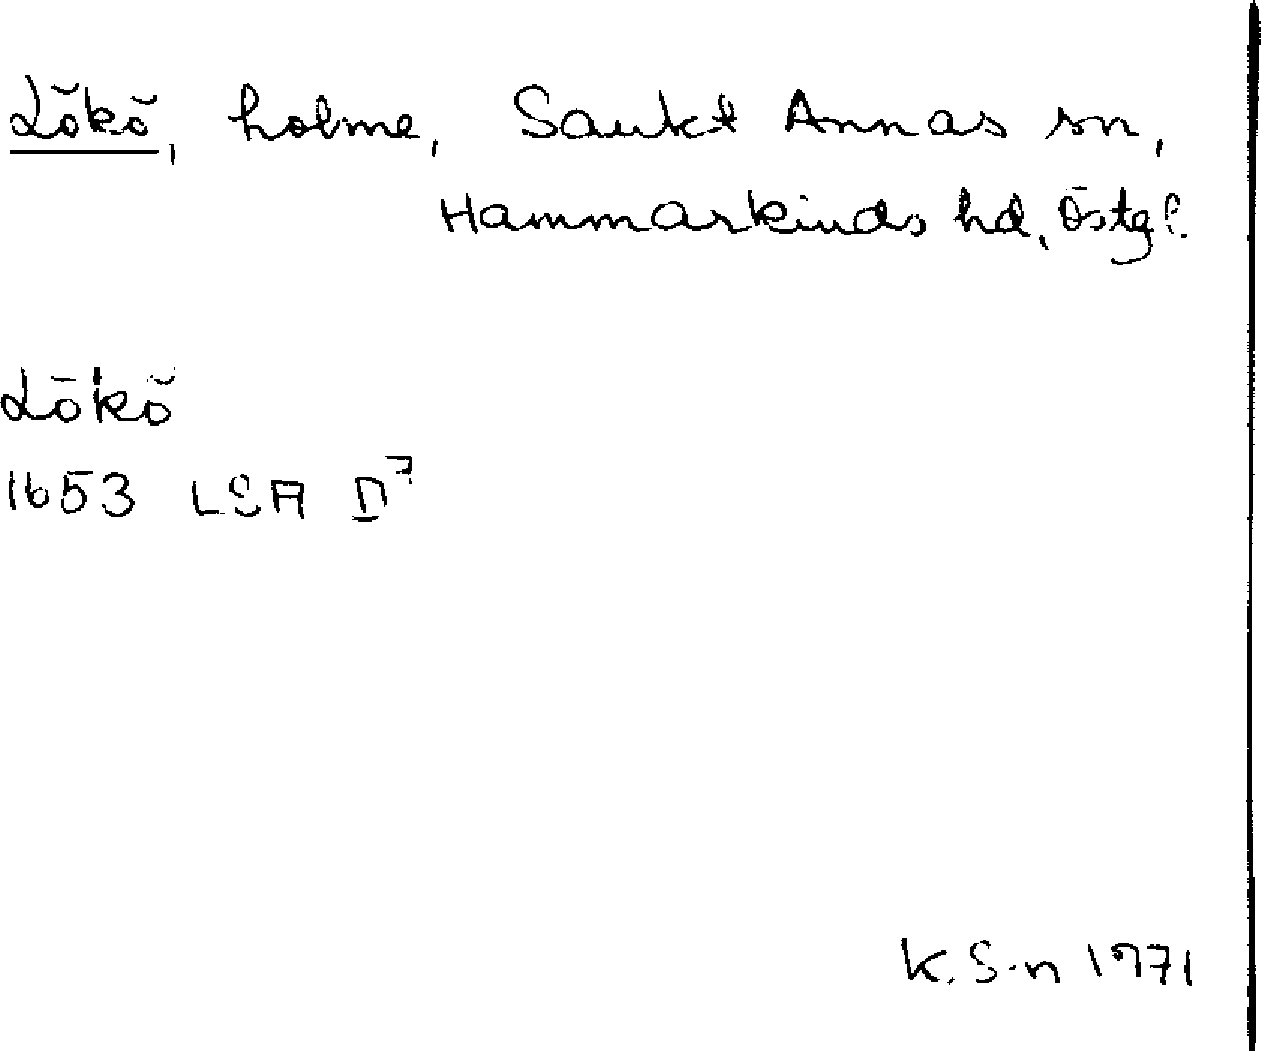 Lökö, holme, Sankt Annas sn,
Hammarkinds hd, Östgl.
Lökö
1653 LSA D7
K. S-n 1971